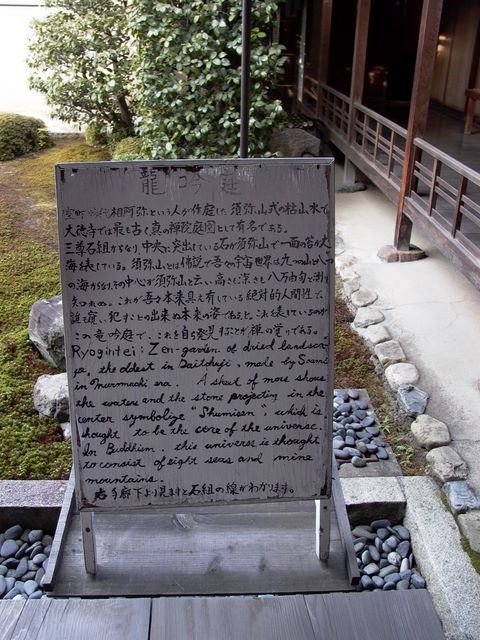 龍吟庭
室町時代相阿弥という人が作庭した須弥山式の枯山水で、
大徳寺では最も古く、真の禅院庭園として有名である。
三尊石組からなり、中央に突出している石が須弥山で一面の苔が大
海を表している。須弥山とは伝説で吾々の宇宙世界は九つの山と八つ
の海からなり、その中心が須弥山と云い、高さも深さも八万由旬と測り
知れぬ。これが吾々本来具え有している絶対的人間性で、
誰も窺い、犯すことの出来ぬ本来の姿であると、これを表しているのが
この竜吟庭で、これを自ら発見することが禅の悟りである。
Ryogintei: Zen-garden of dried landsca-
pe, the oldest in Daitokuji, made by Soami
in Muromachi era. A sheet of moss shows
the waters and the stone projecting in the
center symbolize "Shumisen", which is
thought to be the core of the universe.
In Buddhism, this universe is thought
to consist of eight seas and nine
mountains.
右手廊下より見ますと石組の線がわかります。